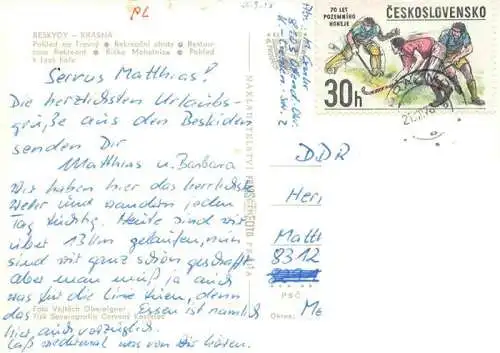 PL
BESKYDY - KRÁSNÁ
Pohled na Travný • Rekreační chaty • Restau-
race Rekrent • Říčka Mohelnice • Pohled
k Lysé hoře
Servus Matthias!
Die herzlichsten Urlaubs-
grüße aus den Beskiden
senden Dir
Matthias u. Barbara
Wir haben hier das herrlichste
Wetter und wandern jeden
Tag tüchtig. Heute sind wir
über 13 km gelaufen, nun
sind wir ganz schön geschafft
aber man muß ja auch
was für die Linie tun, denn
das Essen ist nämlich
hier auch vorzüglich.
Laß wiedermal was von Dir hören.
Foto Vojtěch Obereigner
Tisk Severografia Červený Kostelec
NAKLADATELSTVÍ PRESSFOTO PRAHA
70 LET
POZEMNÍHO
HOKEJE
ČESKOSLOVENSKO
30h
DDR
Herr
Matt
8312
PSČ
Okres: